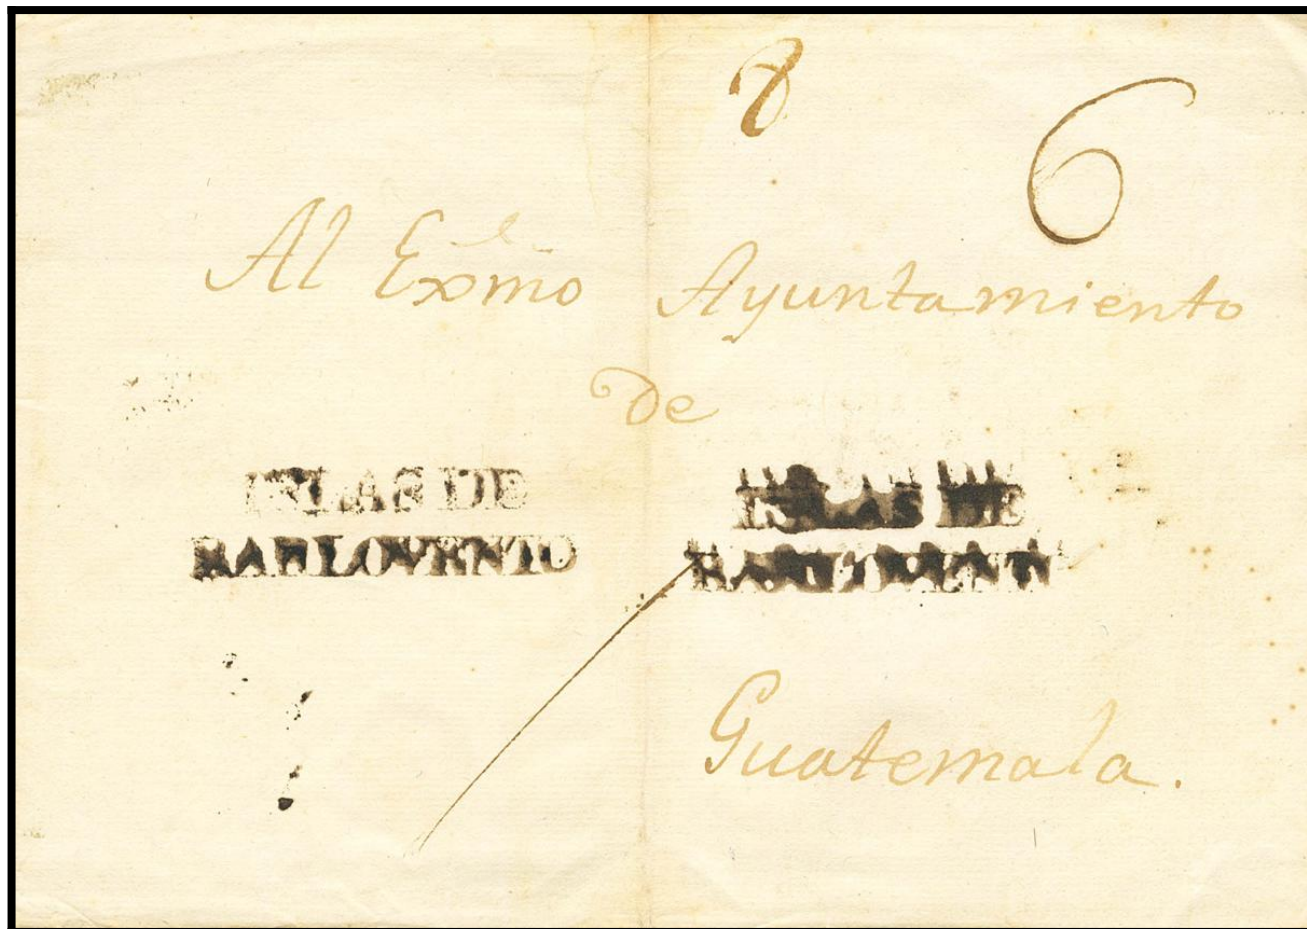 8 6
Al Exmo Ayuntamiento
de
ISLAS DE ISLAS DE
BARLOVENTO
Guatemala.